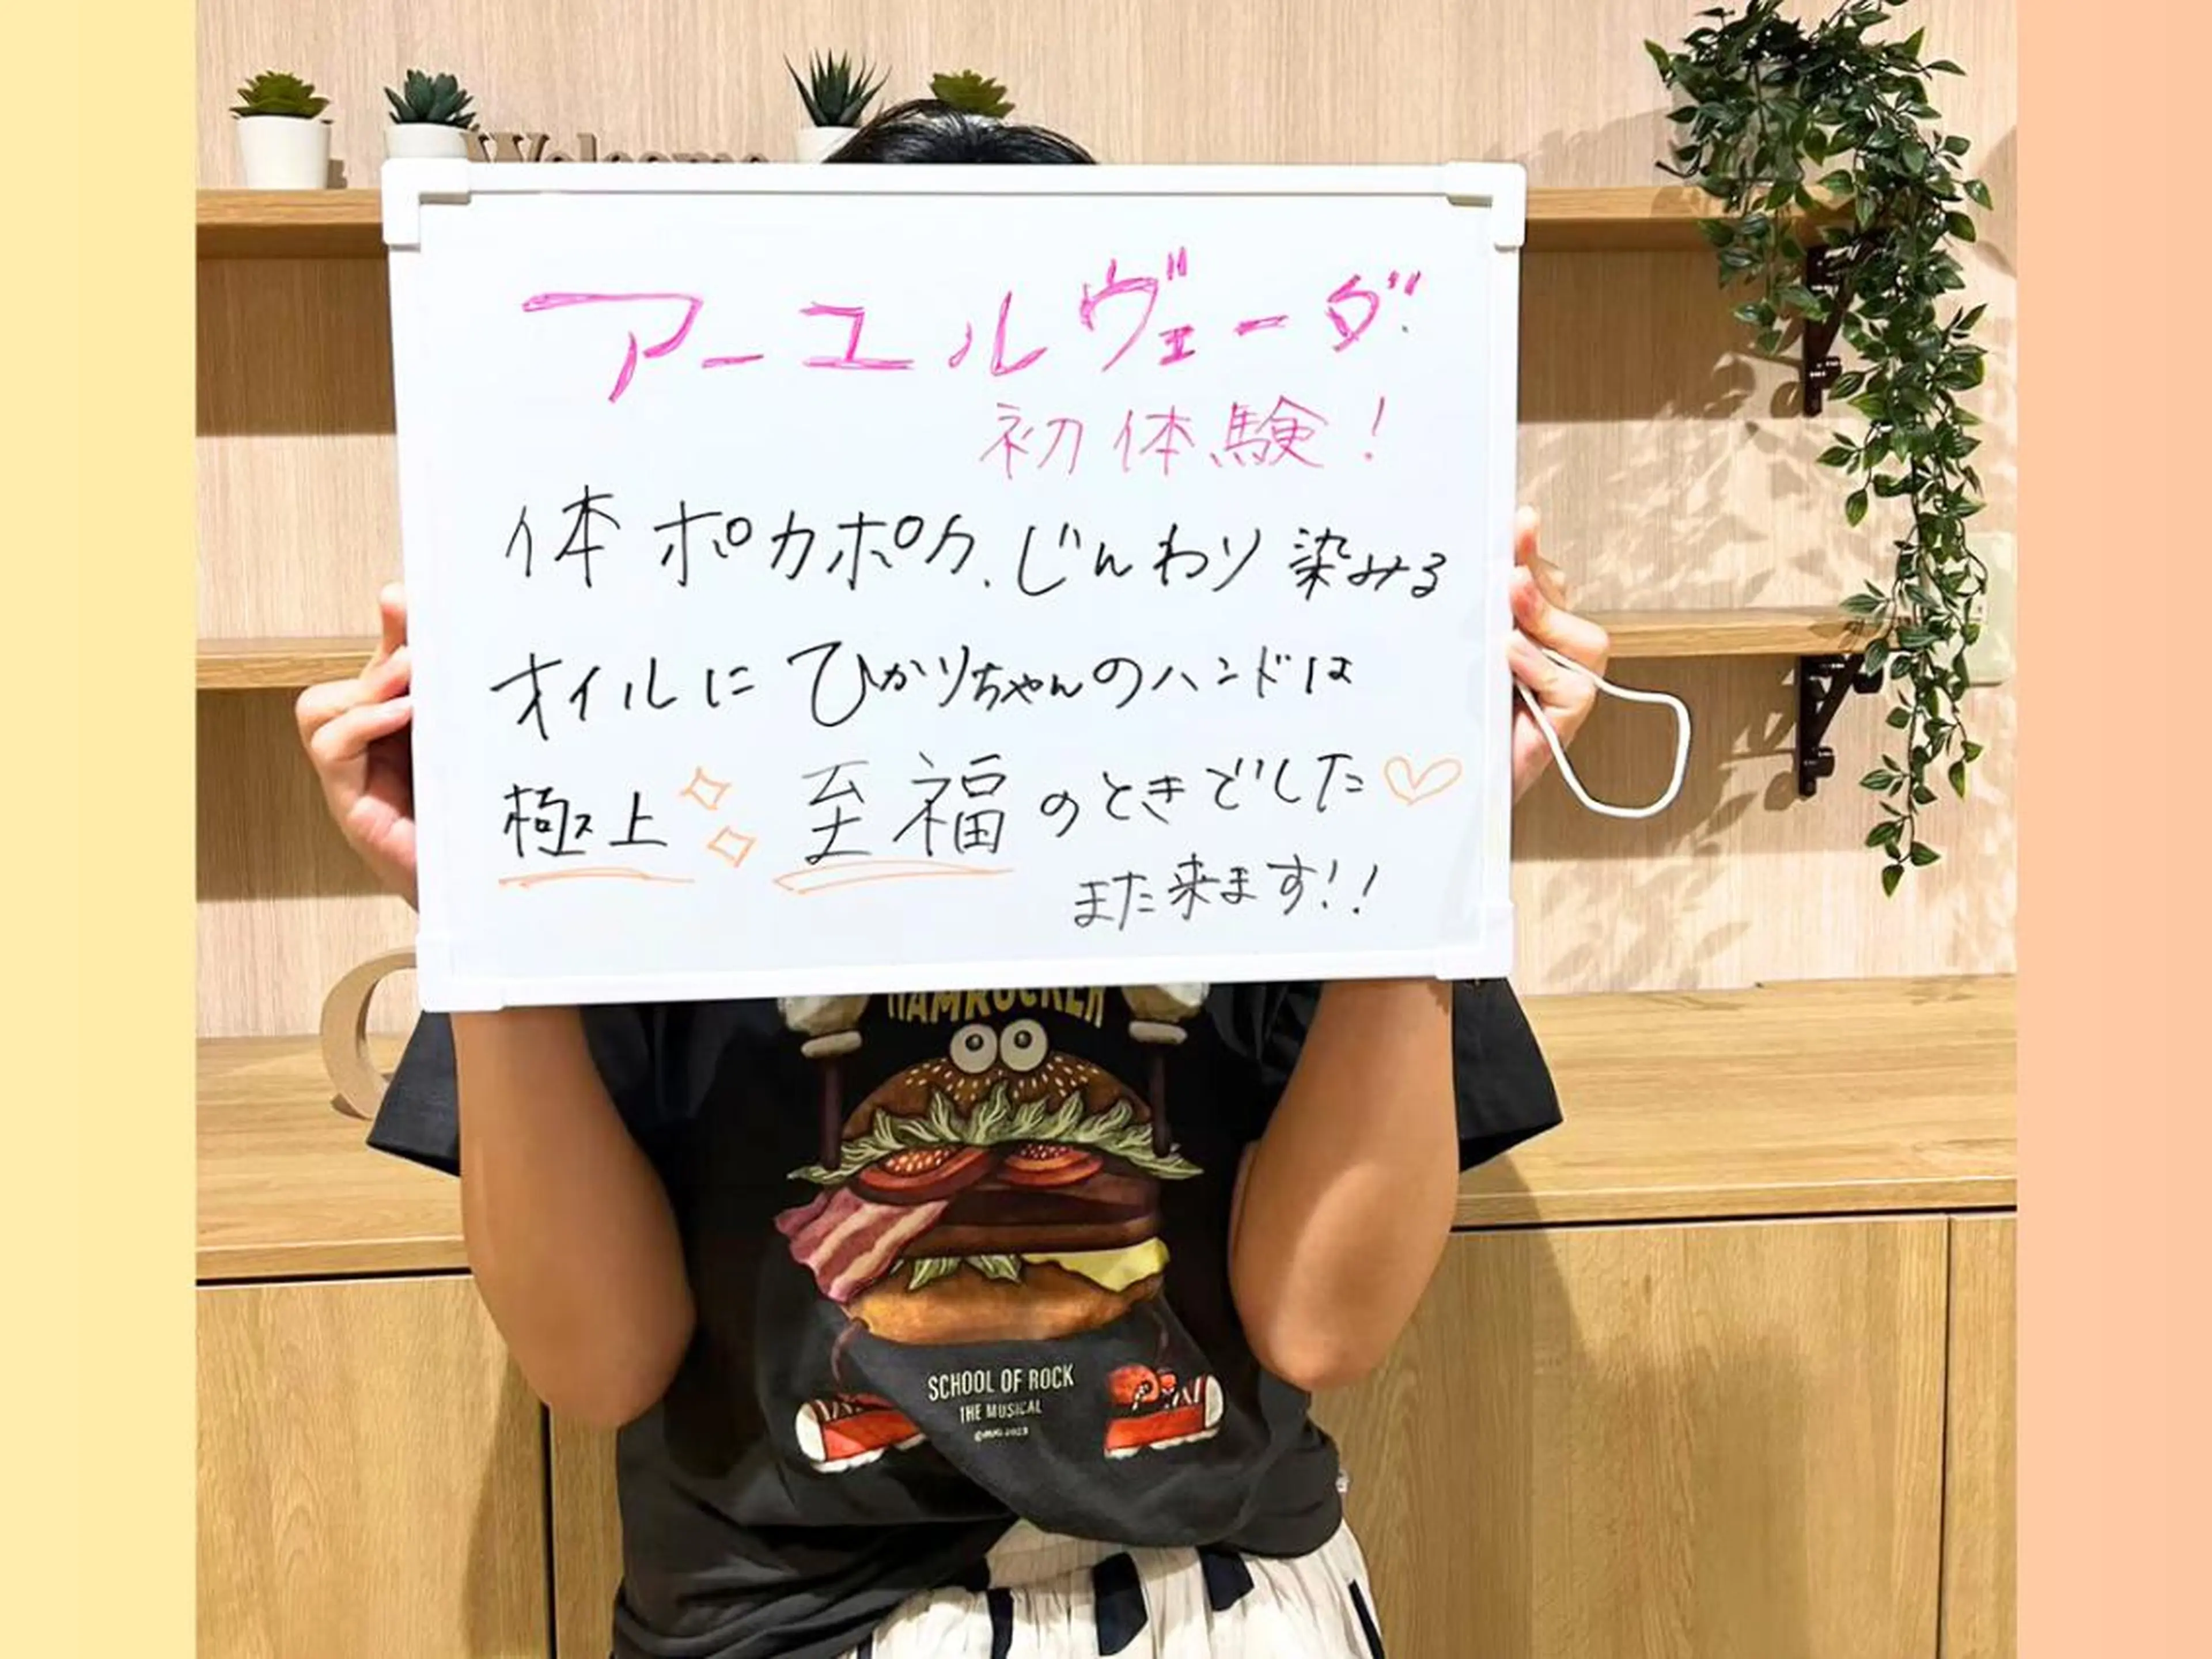 Welcome
アーユルヴェーダ
初体験!
体ポカポカ、じんわり染みる
オイルに ひかりちゃんのハンドは
極上 至福のときでした♡
また来ます!!
HAMROCKER
SCHOOL OF ROCK
THE MUSICAL